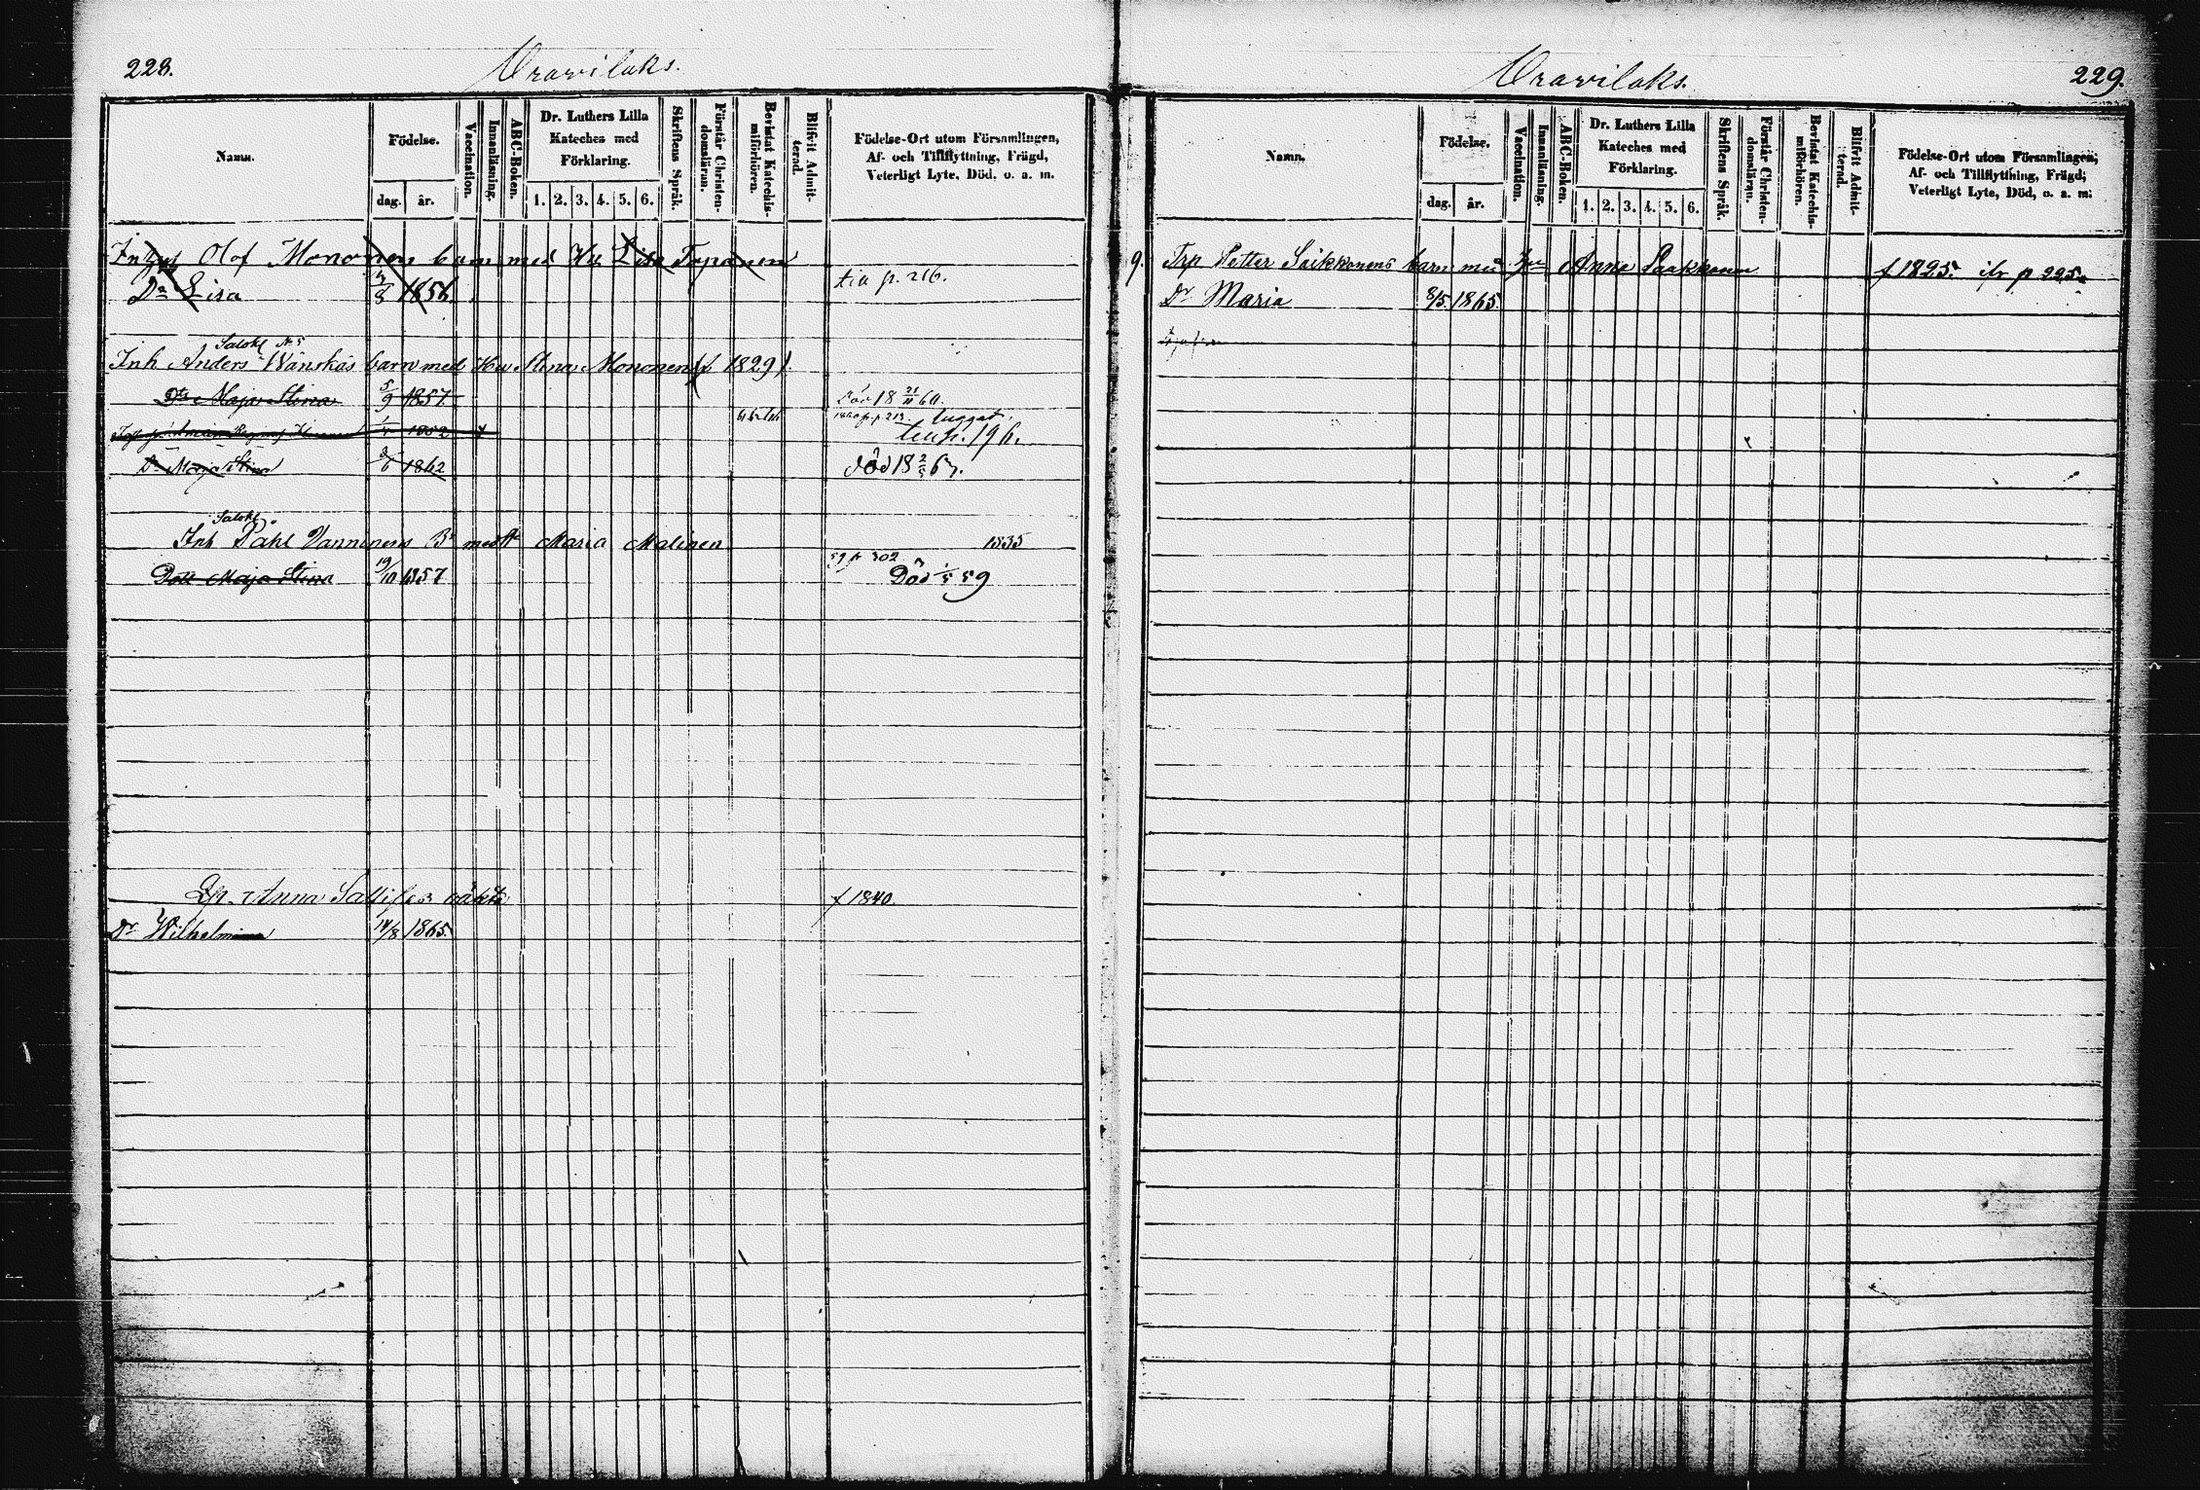 228.
Oravilaks.
Namn.
Födelse.
dag.
år.
Vaccination.
Innanläsning.
ABC-Boken.
Dr. Luthers Lilla
Kateches med
Förklaring.
1. 2. 3. 4. 5. 6.
Skriftens Språk.
Förstår Christen-
domsläran.
Bevistat Katechis-
miförhören.
Blifvit Admit-
terad.
Födelse-Ort utom Församlingen,
Af- och Tillflyttning, Frägd,
Veterligt Lyte, Död, o. a. m.
Olof Mononen barn med Hu Lisa Topanen
Dr Lisa 1856 p. 216.
Salokl N:5
Inh Anders Wänskäs barn med Hu Stina Mononen (f. 1829).
Dr Maja Stina 5/9 1857 Död 18 21/11 60.
1852 p. 196.
Dr Maja Stina 3/6 1862 död 18 2/5 63.
Salokl
Inh Påhl Vanninens Br med H Maria Malinen 1835
Dotr Maja Stina 19/10 1857 59 p 302 Död 1/5 59
Anna oäkta f 1840.
Dr Wilhelmina 14/8 1865.
229.
Oravilaks.
Namn.
Födelse.
dag.
år.
Vaccination.
Innanläsning.
ABC-Boken.
Dr. Luthers Lilla
Kateches med
Förklaring.
1. 2. 3. 4. 5. 6.
Skriftens Språk.
Förstår Christen-
domsläran.
Bevistat Katechis-
miförhören.
Blifvit Admit-
terad.
Födelse-Ort utom Församlingen,
Af- och Tillflyttning, Frägd,
Veterligt Lyte, Död, o. a. m.
9. Trp Petter Saikkonens barn med Anna Laakkonen f 1825. p 225.
Dr Maria 8/5. 1865.